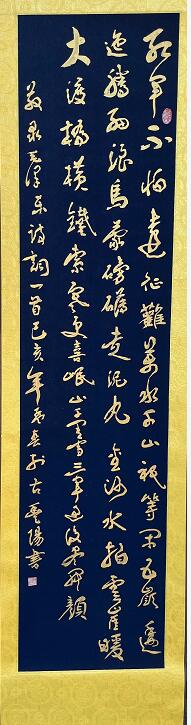 紅軍不怕遠征難萬水千山祗等閑五嶺逶
迤騰細浪烏蒙磅礴走泥丸金沙水拍雲崖暖
大渡橋橫鐵索寒更喜岷山千里雪三軍過後盡開顏
敬录毛澤東詩詞一首己亥年於古陽書